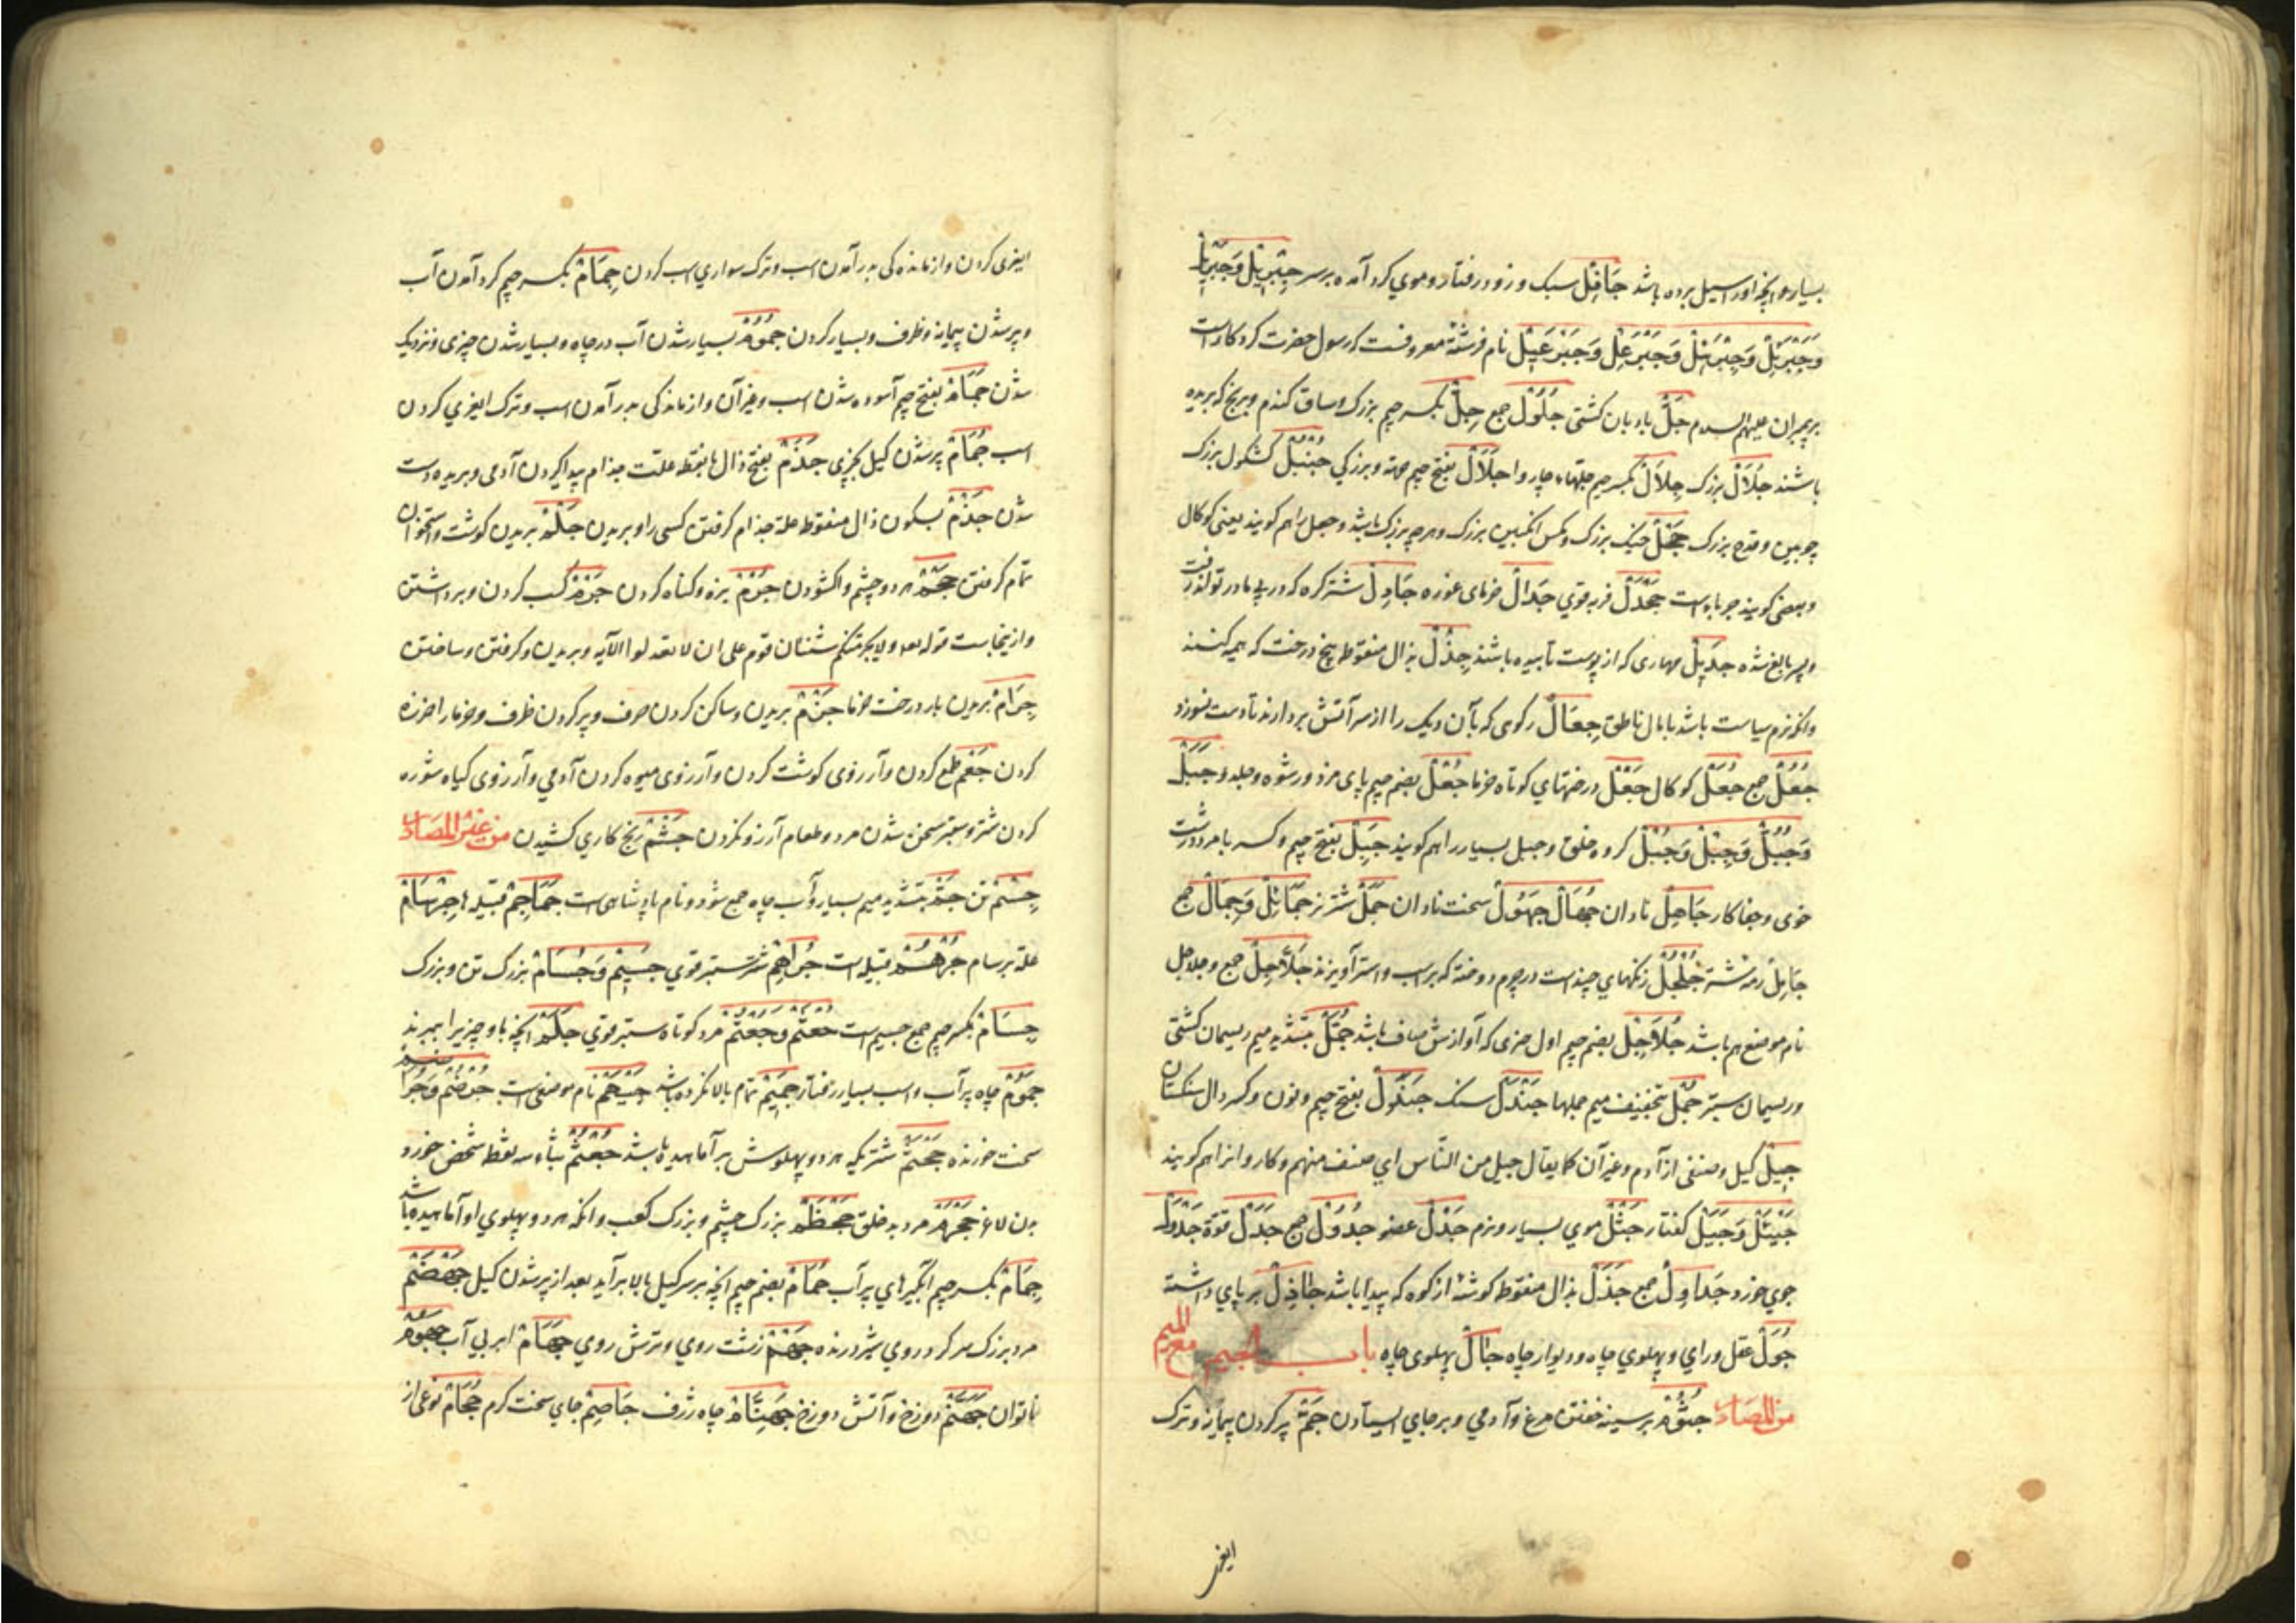 بسیار و انچه اورا سیل برده باشد جَافِلْ سبک و زود رفتار و موی کرد آمده بر سر جِبْرِیْلْ وَجَبْرَئِلْ
وَجَبْرَئِلْ وَجِبْرَئِلْ وَجَبْرَعِلْ وَجَبْرَعِیلْ نام فرشتهٔ معروفست که رسول حضرت کردکار است
بر پیمبران علیهم السلام جَلّْ بادبان کشتی جُلُوْل جمع جِلّْ بکسر جیم بزرک و ساق کندم و برنج که بریده
باشند جُلَالْ بزرک جِلَالْ بکسر جیم جلّهاء چاروا جَلَالْ بفتح جیم مهتر و بزرکی جُنْبُلْ کشکول بزرک
چوبین و قدح بزرک جَحْلْ خیک بزرک و مکس انکبین بزرک و هر چه بزرک باشد و جعل را هم کویند یعنی کوکال
و بعضی کویند حرباء است جَحْدَلْ فربه قوی جَدَالْ خرمای غوره جَادِلْ شتر کره که در پی مادر تواند رفت
و پسر بالغ شده جَدِیْلْ مهاری که از پوست تابیده باشند جِذْلْ بذال منقوطه بیخ درخت که هیمه کنند
باشد با بال ناطق جِعَالْ رکوی که بآن دیک را از سر آتش بردارند تا دست نسوزد
جُعُلْ جمع جُعَلْ کوکال جَعْلْ درختهای کوتاه خرما جُعْلْ بضم جیم پای مزد و رشوه و جلد و جَبَلْ
وَجُبُلْ وَجِبْلْ وَجُبْلْ کروه خلق و جبل بسیار را هم کویند جَبِلْ بفتح جیم و کسر با مرد درشت
خوی و جفاکار جَاهِلْ نادان جُهَّالْ جَهُوْلْ سخت نادان جَمَلْ شتر نر جَمَائِلْ وَجِمَالْ جمع
جَامِلْ رمه شتر جُلْجُلْ زنکهای چند است در چرم دوخته که بر اسب و استر آویزند جَلَاجِلْ جمع و جلاجل
نام موضع هم باشد جُلَاجِلْ بضم جیم اول خری که آوازش صاف باشد جُمَّلْ بتشدید میم ریسمان کشتی
و ریسمان ستبر جُمَلْ بتخفیف میم جملها جَنْدَلْ سنک جَنَدِلْ بفتح جیم و نون و کسر دال سنکستان
جِیْلْ کیل و صنفی از آدم و غیر آن کما یقال جیل من النّاس ای صنف منهم و کاروانرا هم کویند
جَیْئَلْ وَجَیَلْ کفتار جَثْلْ موی بسیار و نرم جَدْلْ عضو جُدُوْلْ جمع جَدَلْ قوّة جَدْوَلْ
جوی خورد جَدَاوِلْ جمع جَذَلْ بذال منقوطه کوشهٔ از کوه که پیدا باشد جَاذِلْ بر پای داشته
جُوْلْ عقل و رای و پهلوی چاه و دیوار چاه جَالْ پهلوی چاه باب الجیم مع المیم
من المصادر جُثُوْمْ بر سینه خفتن مرغ و آدمی و بر جای ایستادن جَمّْ پر کردن پیمانه و ترک
ایغر
ایغری کردن و از ماندکی بدر آمدن اسب و ترک سواری اسب کردن جِمَامْ بکسر جیم کرد آمدن آب
و پر شدن پیمانه و ظرف و بسیار کردن جُمُوْمْ بسیار شدن آب در چاه و بسیار شدن چیزی و نزدیک
شدن جَمَامْ بفتح جیم آسوده شدن اسب و غیر آن و از ماندکی بدر آمدن اسب و ترک ایغری کردن
اسب جُمَامْ پر شدن کیل بچیزی جَذَمْ بفتح ذال بانقطه علّت جذام پیدا کردن آدمی و بریده دست
شدن جَذْمْ بسکون ذال منقوطه علة جذام کرفتن کسی را و بریدن جَلْمْ بریدن کوشت و استخوان
تمام کرفتن جَحْمْ هر دو چشم واکشودن جَرْمْ بزه و کناه کردن جَرْمْ کسب کردن و برداشتن
و ازینجاست قوله تعه ولا یجرمنکم شنئان قوم علی ان لا تعدلوا الآیه و بریدن و کرفتن و ساختن
جِرَامْ بریدن بار درخت خرما جَزْمْ بریدن و ساکن کردن حرف و پر کردن ظرف و خرما را حزر
کردن جَعَمْ طمع کردن و آرزوی کوشت کردن و آرزوی میوه کردن آدمی و آرزوی کیاه شوره
کردن شتر و ستبر سخن شدن مرد و طعام آرزو نکردن جَشْمْ رنج کاری کشیدن من غیر المصادر
جِسْمْ تن جَمّْ بتشدید میم بسیار و آب چاه جمع شود و نام پادشاهی است جَمَاجِمْ قبیله ها جِرْسَامْ
علة برسام جُرْهُمْ قبیله است جُرَاهِمْ شتر ستبر قوی جَسِیْمْ وَجُسَامْ بزرک تن و بزرک
جِسَامْ بکسر جیم جمع جسیم است جُعْثُمْ وَجَعْثَمْ مرد کوتاه ستبر قوی جَلَمْ انچه باو چیز را ببرند
جَمُوْمْ چاه پر آب و اسب بسیار رفتار جَمِیْمْ تمام بالا نکرده باشد جَیْهَمْ نام موضعی است جُرْضُمْ وَجُرَا
سخت خورنده جَحْشَمْ شتریکه هر دو پهلوش بر آماسیده باشد جُعْثُمْ بثاء سه نقطه شخص خورد
بدن لاغر جَهْرَمْ مرد بد خلق جَحْظَمْ بزرک چشم و بزرک کعب و انکه هر دو پهلوی او آماسیده باشد
جِمَامْ بکسر جیم آبکیرهای پر آب جُمَامْ بضم جیم انچه بر سر کیل بالا برآید بعد از پر شدن کیل جَهْضَمْ
مرد بزرک سر کرد روی شیر درنده جَهْمْ زشت روی و ترش روی جَهَامْ ابر بی آب جَهُوْمْ
ناتوان جَهَنَّمْ دوزخ و آتش دوزخ جَهِنَّامْ چاه ژرف جَاحِمْ جای سخت کرم جُحَامْ نوعی از